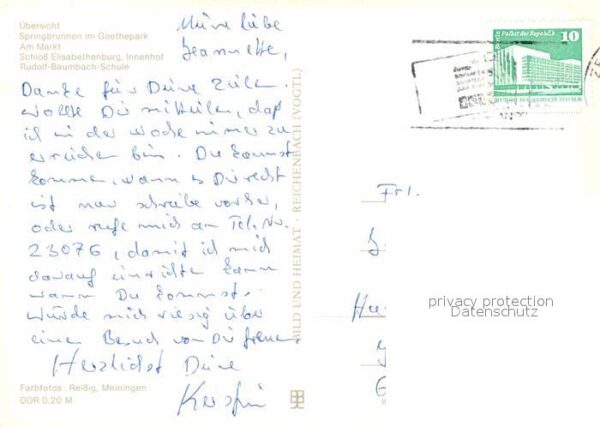 Übersicht
Springbrunnen im Goethepark
Am Markt
Schloß Elisabethenburg, Innenhof
Rudolf-Baumbach-Schule
Meine liebe
Jeannette,
Danke für Deine Zeilen.
Wollte Dir mitteilen, daß
ich in der Woche immer zu
erreichen bin. Du kannst
kommen, wann es Dir recht
ist nur schreibe vorher,
oder rufe mich an Tel. Nr.
23076, damit ich mich
darauf einrichten kann
wann Du kommst.
Würde mich riesig über
einen Besuch von Dir freuen.
Herzlichst Deine
Kerstin
Farbfotos: Reißig, Meiningen
DDR 0,20 M
BILD UND HEIMAT · REICHENBACH (VOGTL)
Palast der Republik
10
Frl.
privacy protection
Datenschutz